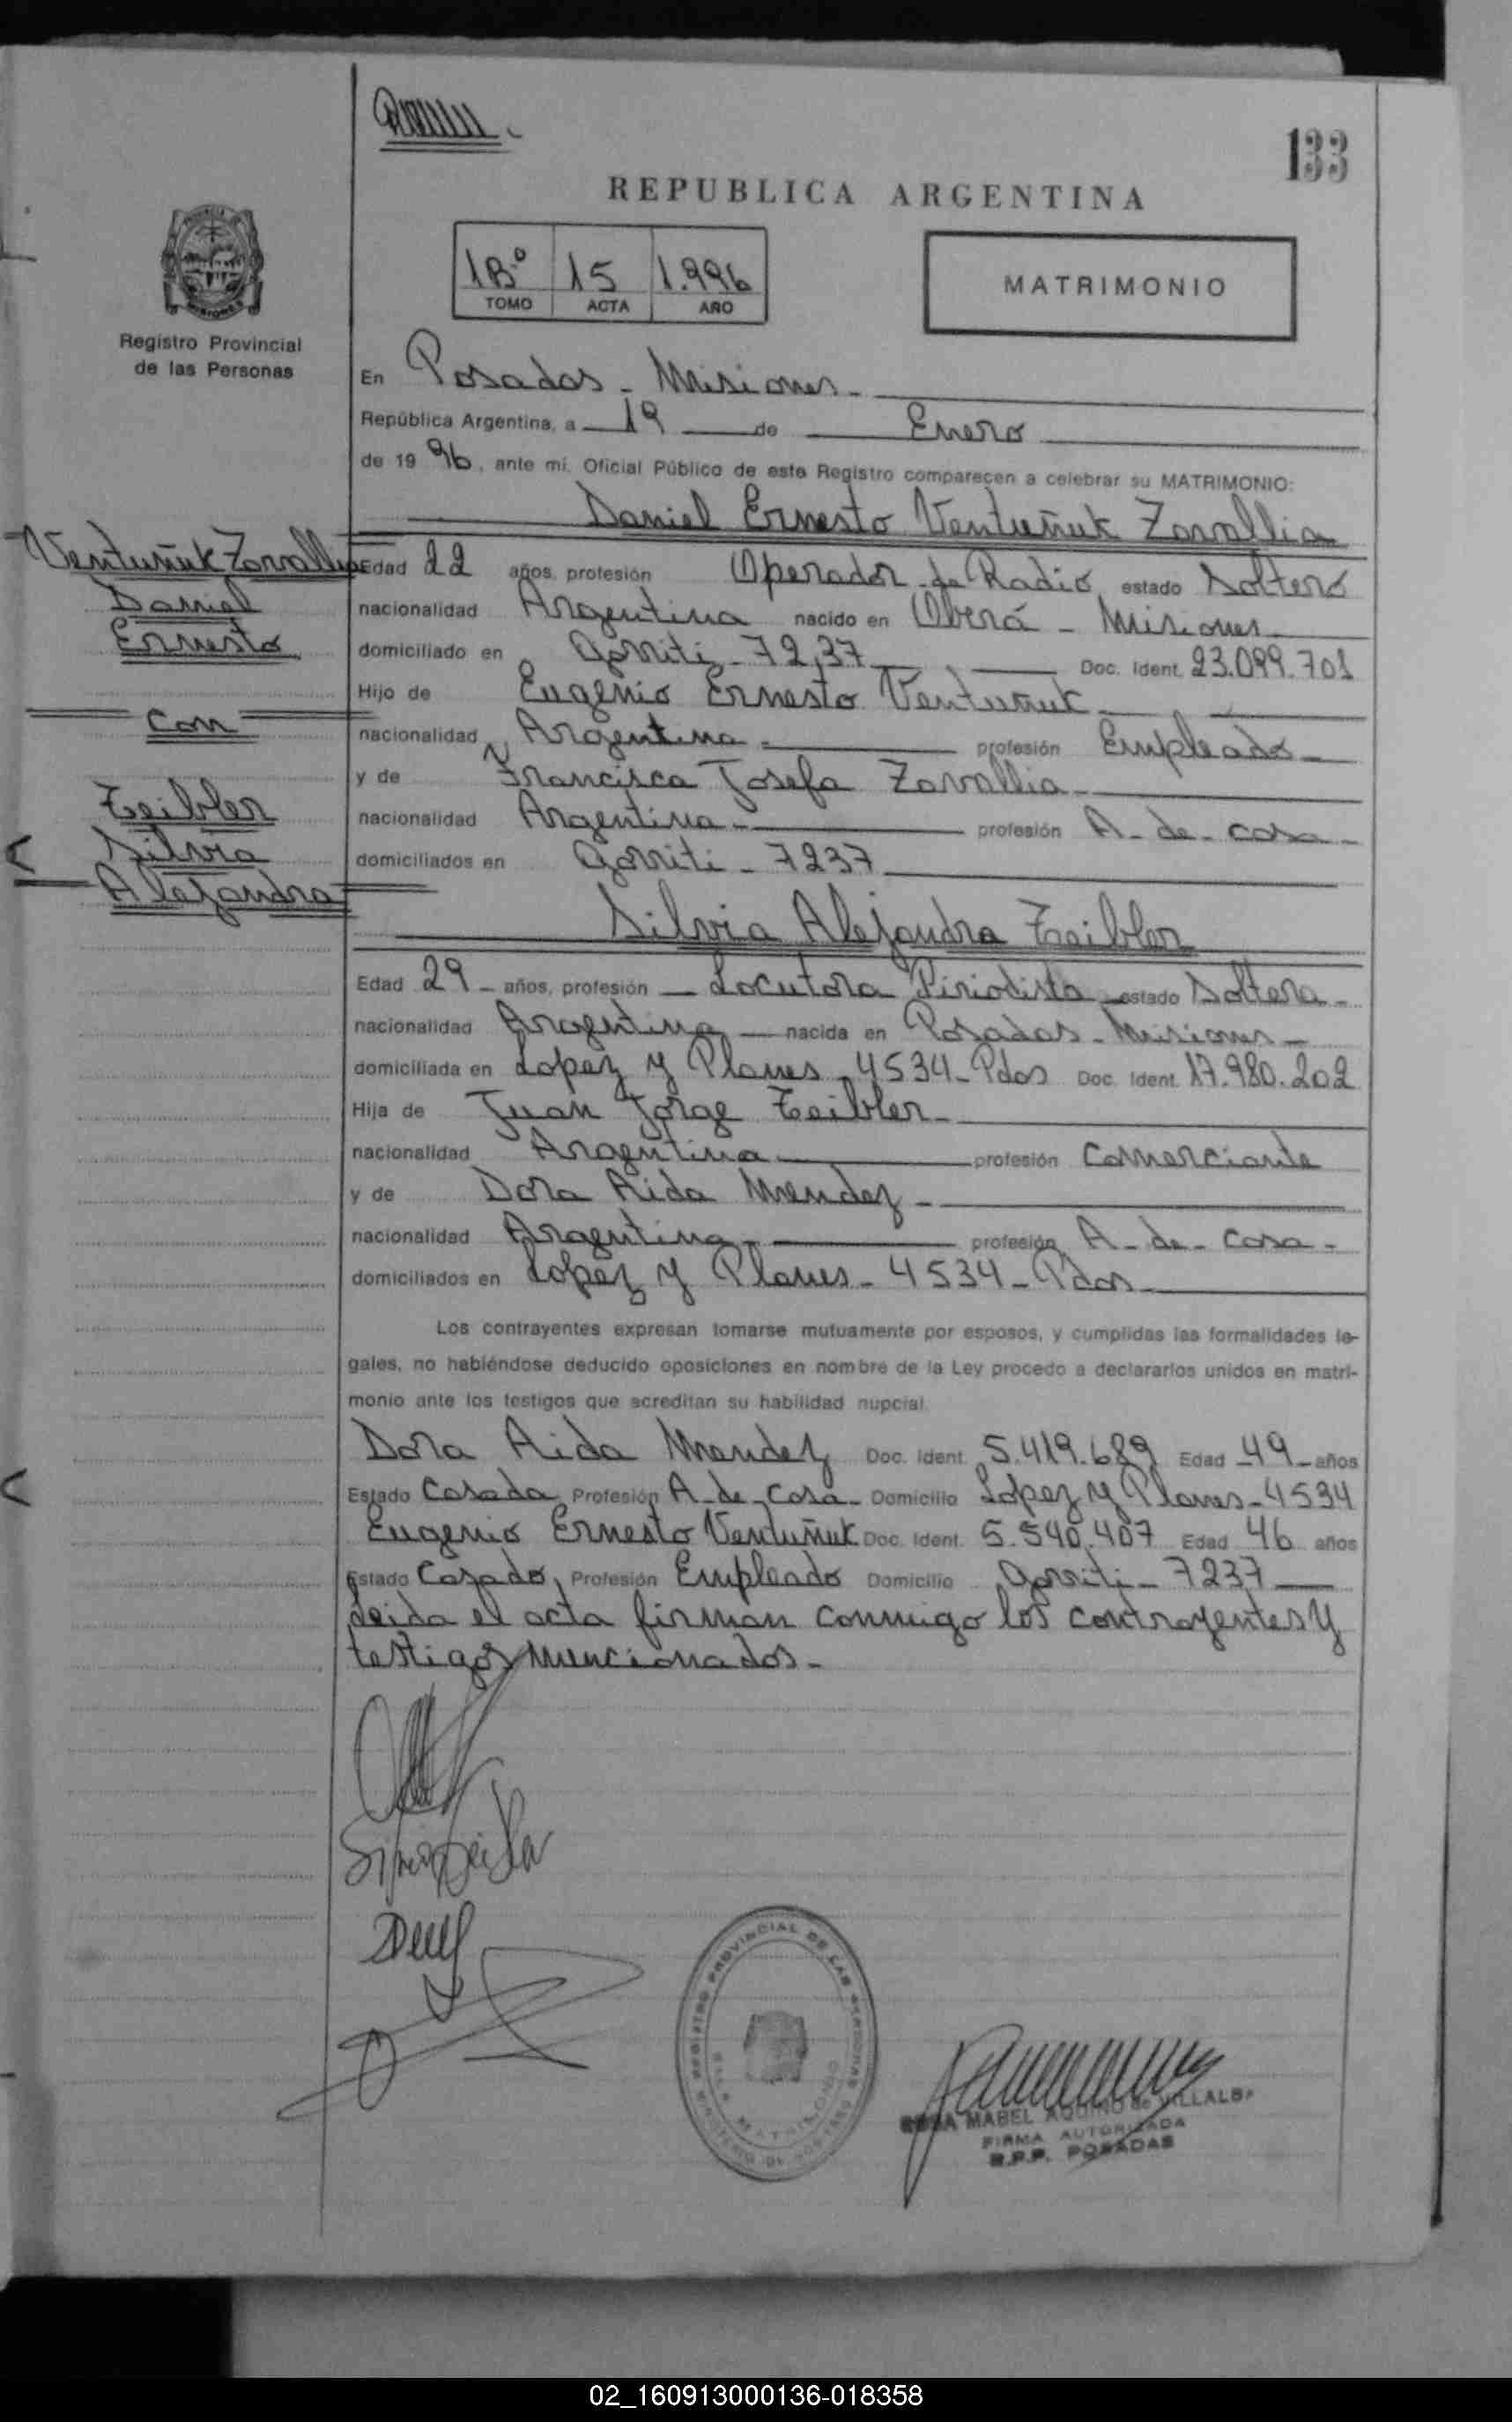 133
REPUBLICA ARGENTINA
1B° 15 1.996
TOMO ACTA AÑO
MATRIMONIO
Registro Provincial
de las Personas
En Posadas - Misiones -
República Argentina, a 19 de Enero
de 19 96, ante mí, Oficial Público de este Registro comparecen a celebrar su MATRIMONIO:
Daniel Ernesto Ventuñuk Zavallia
Ventuñuk Zavallia
Daniel
Ernesto
Con
Zeibler
Silvia
Alejandra
Edad 22 años, profesión Operador de Radio estado Soltero
nacionalidad Argentina nacido en Oberá - Misiones
domiciliado en Gorriti - 7237 Doc. Ident. 23.099.701
Hijo de Eugenio Ernesto Ventuñuk
nacionalidad Argentina - profesión Empleado -
y de Francisca Josefa Zavallia -
nacionalidad Argentina - profesión A - de - casa -
domiciliados en Gorriti - 7237
Silvia Alejandra Zeibler
Edad 29 - años, profesión - Locutora Piriodista estado Soltera -
nacionalidad Argentina - nacida en Posadas - Misiones -
domiciliada en Lopez y Planes - 4534 - Pdas Doc. Ident. 17.980.202
Hija de Juan Jorge Zeibler -
nacionalidad Argentina profesión Comerciante
y de Dora Aida Mendez -
nacionalidad Argentina - profesión A - de - casa -
domiciliados en Lopez y Planes - 4534 - Pdas
Los contrayentes expresan tomarse mutuamente por esposos, y cumplidas las formalidades le-
gales, no habiéndose deducido oposiciones en nombre de la Ley procedo a declararlos unidos en matri-
monio ante los testigos que acreditan su habilidad nupcial.
Dora Aida Mendez Doc. Ident. 5.419.689 Edad 49 - años
Estado Casada Profesión A - de - casa - Domicilio Lopez y Planes - 4534
Eugenio Ernesto Ventuñuk Doc. Ident. 5.540.407 Edad 46 años
Estado Casado, Profesión Empleado Domicilio Gorriti - 7237
Leida el acta firman conmigo los contrayentes y
testigos mencionados -
REGISTRO PROVINCIAL DE LAS PERSONAS
MABEL AQUINO de VILLALBA
FIRMA AUTORIZADA
R.P.P. POSADAS
02_160913000136-018358